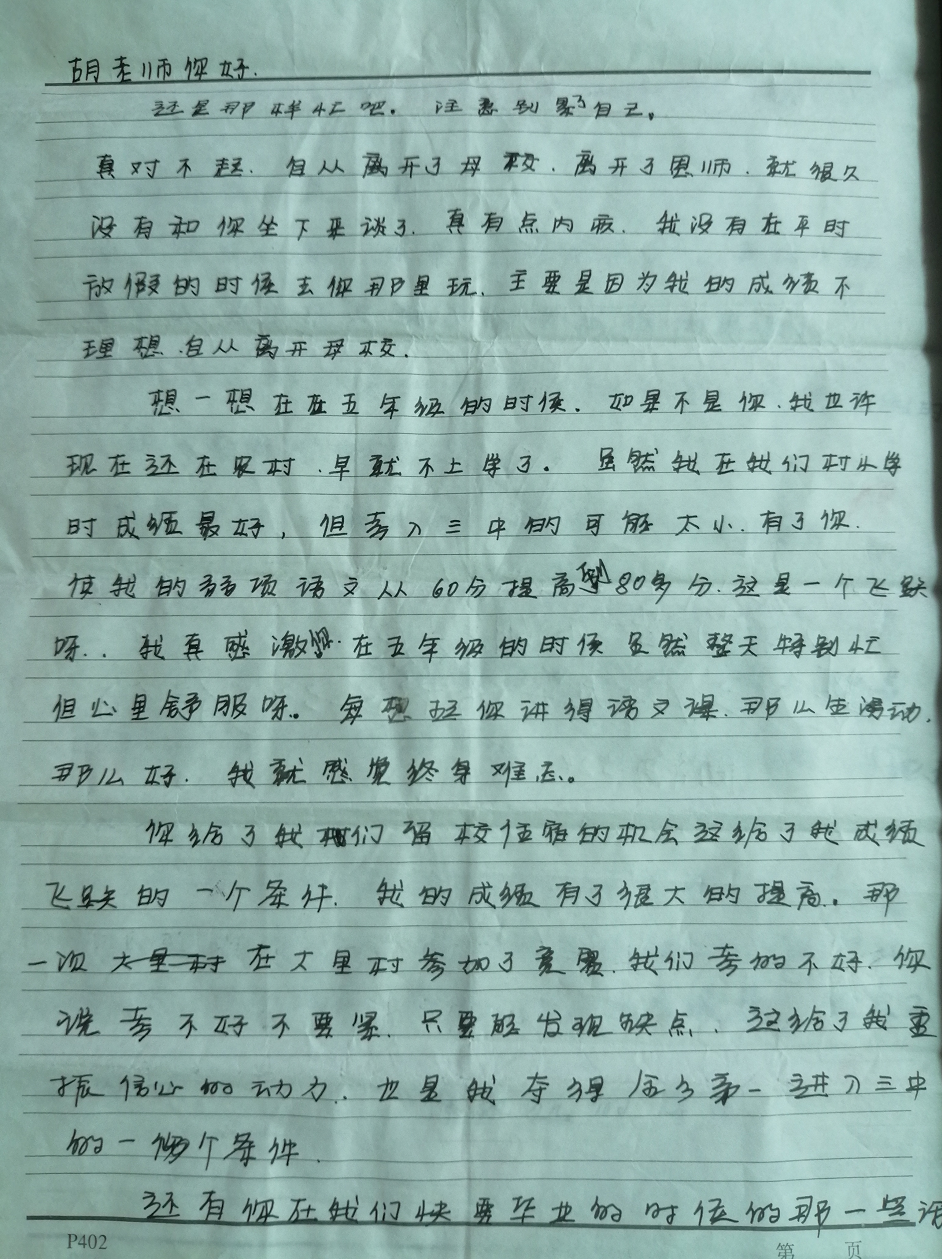 胡老师你好.
还是那样忙吧。注意别累了自己。
真对不起.自从离开了母校.离开了恩师.就很久
没有和你坐下来谈了.真有点内疚.我没有在平时
放假的时候去你那里玩.主要是因为我的成绩不
理想.自从离开母校.
想一想在在五年级的时候.如果不是你.我也许
现在还在农村.早就不上学了。虽然我在我们村小学
时成绩最好,但考入三中的可能太小.有了你.
使我的弱项语文从60分提高到80多分.这是一个飞跃
呀..我真感激您.在五年级的时候虽然整天特别忙
但心里舒服呀。每想起你讲得语文课.那么生动.
那么好.我就感觉终身难忘。
你给了我们留校住宿的机会这给了我成绩
飞跃的一个条件.我的成绩有了很大的提高。那
一次大里村在大里村参加了竞赛.我们考的不好.你
说考不好不要紧.只要能发现缺点.这给了我重
振信心的动力.也是我夺得全乡第一进入三中
的一个条件.
还有你在我们快要毕业的时候的那一些话
P402
第 页